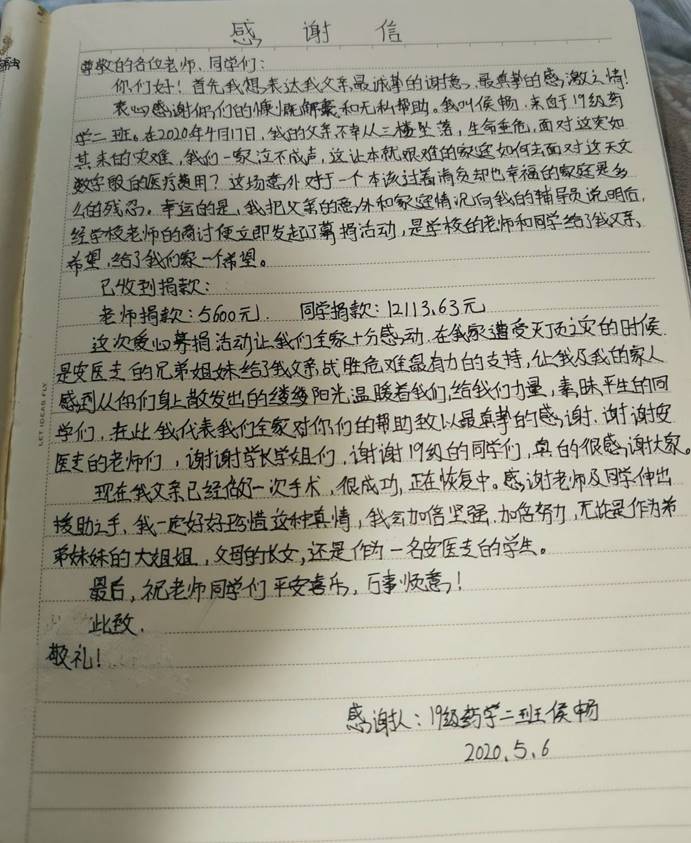 感谢信
尊敬的各位老师、同学们：
你们好！首先我想表达我父亲最诚挚的谢意，最真挚的感激之情！
衷心感谢你们的慷慨解囊和无私帮助。我叫侯畅，来自于19级药
学二班。在2020年4月17日，我的父亲不幸从三楼坠落，生命垂危，面对这突如
其来的灾难，我们一家泣不成声，这让本就艰难的家庭如何去面对这天文
数字般的医疗费用？这场意外对于一个本该过着清贫却也幸福的家庭是多
么的残忍。幸运的是，我把父亲的意外和家庭情况向我的辅导员说明后，
经学校老师的商讨便立即发起了募捐活动，是学校的老师和同学给了我父亲
希望，给了我们家一个希望。
已收到捐款：
老师捐款：5600元. 同学捐款：12113.63元
这次爱心募捐活动让我们全家十分感动，在我家遭受灭顶之灾的时候
是安医专的兄弟姐妹给了我父亲战胜危难最有力的支持，让我及我的家人
感到从你们身上散发出的缕缕阳光温暖着我们，给我们力量，素昧平生的同
学们，在此我代表我们全家对你们的帮助致以最真挚的感谢.谢谢安
医专的老师们，谢谢学长学姐们，谢谢19级的同学们，真的很感谢大家。
现在我父亲已经做好一次手术，很成功，正在恢复中。感谢老师及同学伸出
援助之手，我一定好好珍惜这种真情，我会加倍坚强.加倍努力，无论是作为弟
弟妹妹的大姐姐，父母的长女，还是作为一名安医专的学生。
最后，祝老师同学们平安喜乐，万事顺意！
此致.
敬礼！
感谢人：19级药学二班侯畅
2020.5.6
LET IDEAS FLY